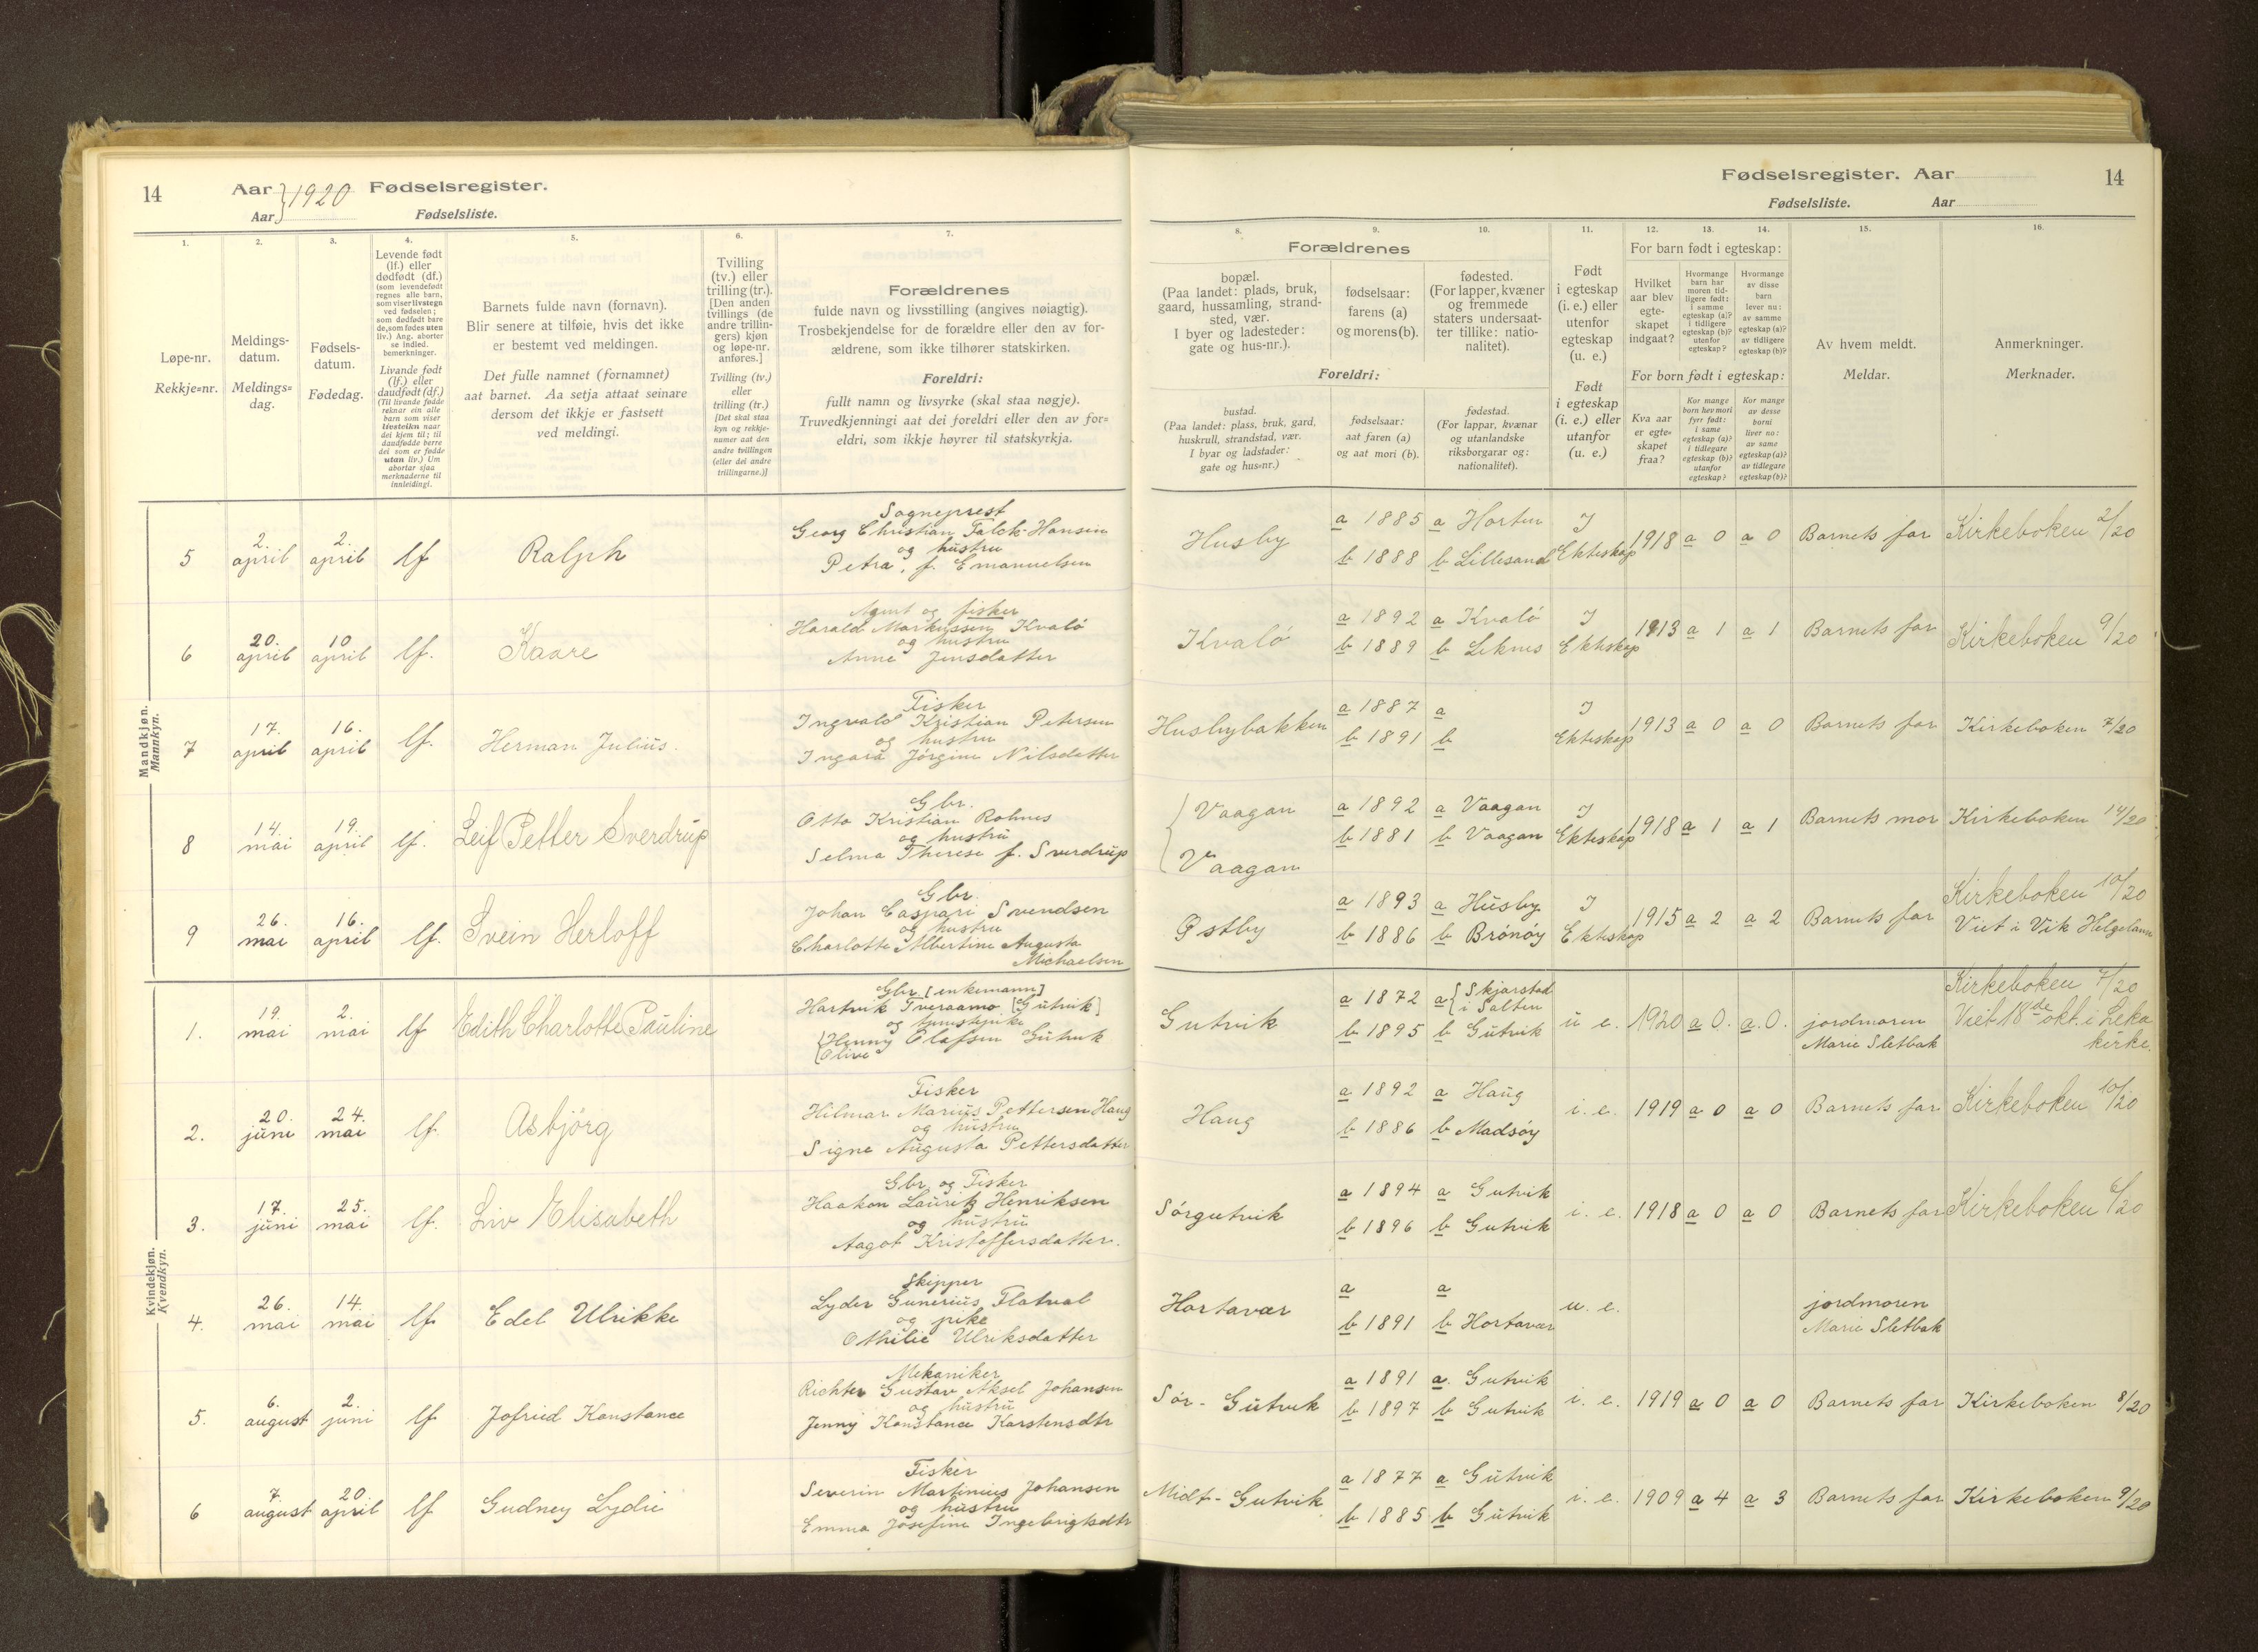 14
Aar 1920 Fødselsregister.
Aar Fødselsliste.
Fødselsregister. Aar
14
Fødselsliste. Aar
1.
Løpe-nr.
Rekkje=nr.
2.
Meldings-
datum.
Meldings=
dag.
3.
Fødsels-
datum.
Fødedag.
4.
Levende født
(lf.) eller
dødfødt (df.)
(som levendefødt
regnes alle barn,
som viser livstegn
ved fødselen;
som dødfødt bare
de, som fødes uten
liv.) Ang. aborter
se indled.
bemerkninger.
Livande født
(lf.) eller
daudfødt (df.)
(Til livande fødde
reknar ein alle
barn som viser
livsteikn naar
dei kjem til; til
daudfødde berre
dei som er fødde
utan liv.) Um
abortar sjaa
merknaderne til
innleidingi.
5.
Barnets fulde navn (fornavn).
Blir senere at tilføie, hvis det ikke
er bestemt ved meldingen.
Det fulle namnet (fornamnet)
aat barnet. Aa setja attaat seinare
dersom det ikkje er fastsett
ved meldingi.
6.
Tvilling
(tv.) eller
trilling (tr.).
[Den anden
tvillings (de
andre trillin-
gers) kjøn
og løpe-nr.
anføres.]
Tvilling (tv.)
eller
trilling (tr.)
[Det skal staa
kyn og rekkje-
numer aat den
andre tvillingen
(eller dei andre
trillingarne.)]
7.
Forældrenes
fulde navn og livsstilling (angives nøiagtig).
Trosbekjendelse for de forældre eller den av for-
ældrene, som ikke tilhører statskirken.
Foreldri:
fullt namn og livsyrke (skal staa nøgje).
Truvedkjenningi aat dei foreldri eller den av for=
eldri, som ikkje høyrer til statskyrkja.
8.
9.
10.
Forældrenes
bopæl.
(Paa landet: plads, bruk,
gaard, hussamling, strand-
sted, vær.
I byer og ladesteder:
gate og hus-nr.).
fødselsaar:
farens (a)
og morens (b).
fødested.
(For lapper, kvæner
og fremmede
staters undersaat-
ter tillike: natio-
nalitet).
Foreldri:
bustad.
(Paa landet: plass, bruk, gard,
huskrull, strandstad, vær.
I byar og ladstader:
gate og hus=nr.)
fødselsaar:
aat faren (a)
og aat mori (b).
fødestad.
(For lappar, kvænar
og utanlandske
riksborgarar og:
nationalitet).
11.
Født
i egteskap
(i. e.) eller
utenfor
egteskap
(u. e.)
Født
i egteskap
(i. e.) eller
utanfor
(u. e.)
12.
13.
14.
For barn født i egteskap:
Hvilket
aar blev
egte-
skapet
indgaat?
Hvormange
barn har
moren tid-
ligere født:
i samme
egteskap (a)?
i tidligere
egteskap (b)?
utenfor
egteskap?
Hvormange
av disse
barn
lever nu:
av samme
egteskap (a)?
av tidligere
egteskap (b)?
For born født i egteskap:
Kva aar
er egte-
skapet
fraa?
Kor mange
born hev mori
fyrr født:
i same
egteskap (a)?
i tidlegare
egteskap (b)?
utanfor
egteskap?
Kor mange
av desse
borni
liver no:
av same
egteskap (a)?
av tidlegare
egteskap (b)?
15.
Av hvem meldt.
Meldar.
16.
Anmerkninger.
Merknader.
Mandkjøn.
Mannkyn.
5 2. april 2. april lf Ralph
Sogneprest
Georg Christian Falck-Hansen
og hustru
Petra, f. Emanuelsen
Husby a 1885 b 1888 a Horten b Lillesand I Ekteskap 1918 a 0 a 0 Barnets far Kirkeboken 2/20
6 20. april 10 april lf. Kaare
Agent og fisker
Harald Markussen Kvalö
og hustru
Anne Jensdatter
Kvalö a 1892 b 1889 a Kvalö b Leknes I Ekteskap 1913 a 1 a 1 Barnets far Kirkeboken 9/20
7 17. april 16. april lf. Herman Julius.
Fisker
Ingvald Kristian Petersen
og hustru
Ingara Jörgine Nilsdatter
Husbybakken a 1887 b 1891 a b I Ekteskap 1913 a 0 a 0 Barnets far Kirkeboken 7/20
8 14. mai 19. april lf. Leif Petter Sverdrup
Gbr.
Otto Kristian Rohnes
og hustru
Selma Therese f. Sverdrup
Vaagan
Vaagan a 1892 b 1881 a Vaagan b Vaagan I Ekteskap 1918 a 1 a 1 Barnets mor Kirkeboken 14/20
9 26. mai 16. april lf. Svein Herloff
Gbr.
Johan Caspari Svendsen
og hustru
Charlotte Albertine Augusta
Michaelsen
Østby a 1893 b 1886 a Husby b Brönöy I Ekteskap 1915 a 2 a 2 Barnets far Kirkeboken 10/20
Viet i Vik Helgeland
Kvindekjøn.
Kvendkyn.
1. 19. mai 2. mai lf Edith Charlotte Pauline
Gbr [enkemann]
Hartvik Tveraamo [Gutvik]
og
Henny Olafsen Gutvik
Olive
Gutvik a 1872 b 1895 a Skjarstad i Salten b Gutvik u e. 1920 a 0. a. 0. jordmoren
Marie Sletbak
Kirkeboken 7/20
Viet 18de okt. i Leka
kirke.
2. 20. juni 24. mai lf. Asbjörg
Fisker
Hilmar Marius Pettersen Haug
og hustru
Signe Augusta Pettersdatter
Haug a 1892 b 1886 a Haug b Madsöy i. e. 1919 a 0 a 0 Barnets far Kirkeboken 10/20
3. 17. juni 25. mai lf. Liv Elisabeth
Gbr. og Fisker
Haakon Lauritz Henriksen
og hustru
Aagot Kristoffersdatter.
Sörgutvik a 1894 b 1896 a Gutvik b Gutvik i. e. 1918 a 0 a 0 Barnets far Kirkeboken 6/20
4. 26. mai 14. mai lf. Edel Ulrikke
Skipper
Lyder Gunerius Flatval
og pike
Othilie Ulriksdatter
Hortavær a b 1891 a b Hortavær u. e. jordmoren
Marie Sletbak
5. 6. august 2. juni lf. Jofried Konstance
Mekaniker
Richter Gustav Aksel Johansen
og hustru
Jenny Konstance Karstensdtr
Sör-Gutvik a 1891 b 1897 a. Gutvik b Gutvik i. e. 1919 a 0 a 0 Barnets far Kirkeboken 8/20
6 7. august 20. april lf Gudney Lydie
Fisker
Severin Martinius Johansen
og hustru
Emma Josefine Ingebrigtsdtr
Midt-Gutvik a 1877 b 1885 a Gutvik b Gutvik i. e. 1909 a 4 a 3 Barnets far Kirkeboken 9/20